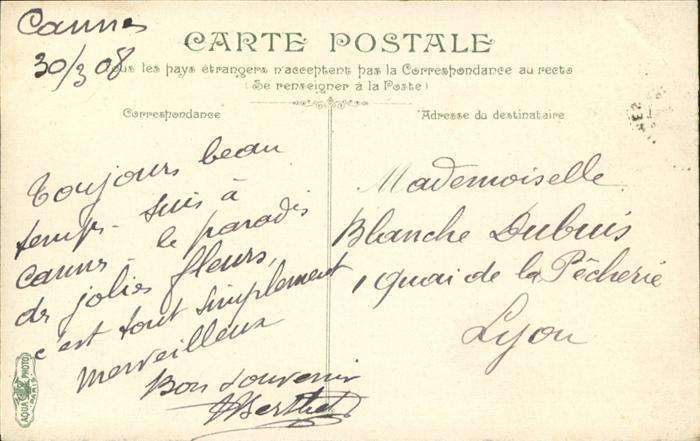 Cannes
30/3 08
CARTE POSTALE
ous les pays étrangers n'acceptent pas la Correspondance au recto
(Se renseigner à la Poste)
Correspondance
Toujours beau
temps - suis à
Cannes - le paradis
des jolies fleurs,
c'est tout simplement
merveilleux
Bon souvenir
Adresse du destinataire
Mademoiselle
Blanche Dubuis
1 Quai de la Pêcherie
Lyon
AQUA PHOTO
PARIS